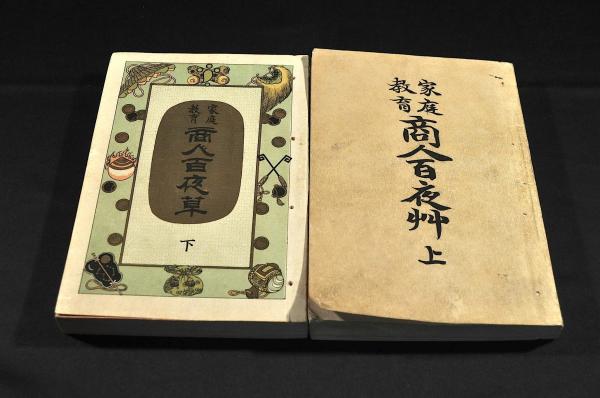 家庭
教育
商人百夜草
下
家庭
教育
商人百夜艸
上